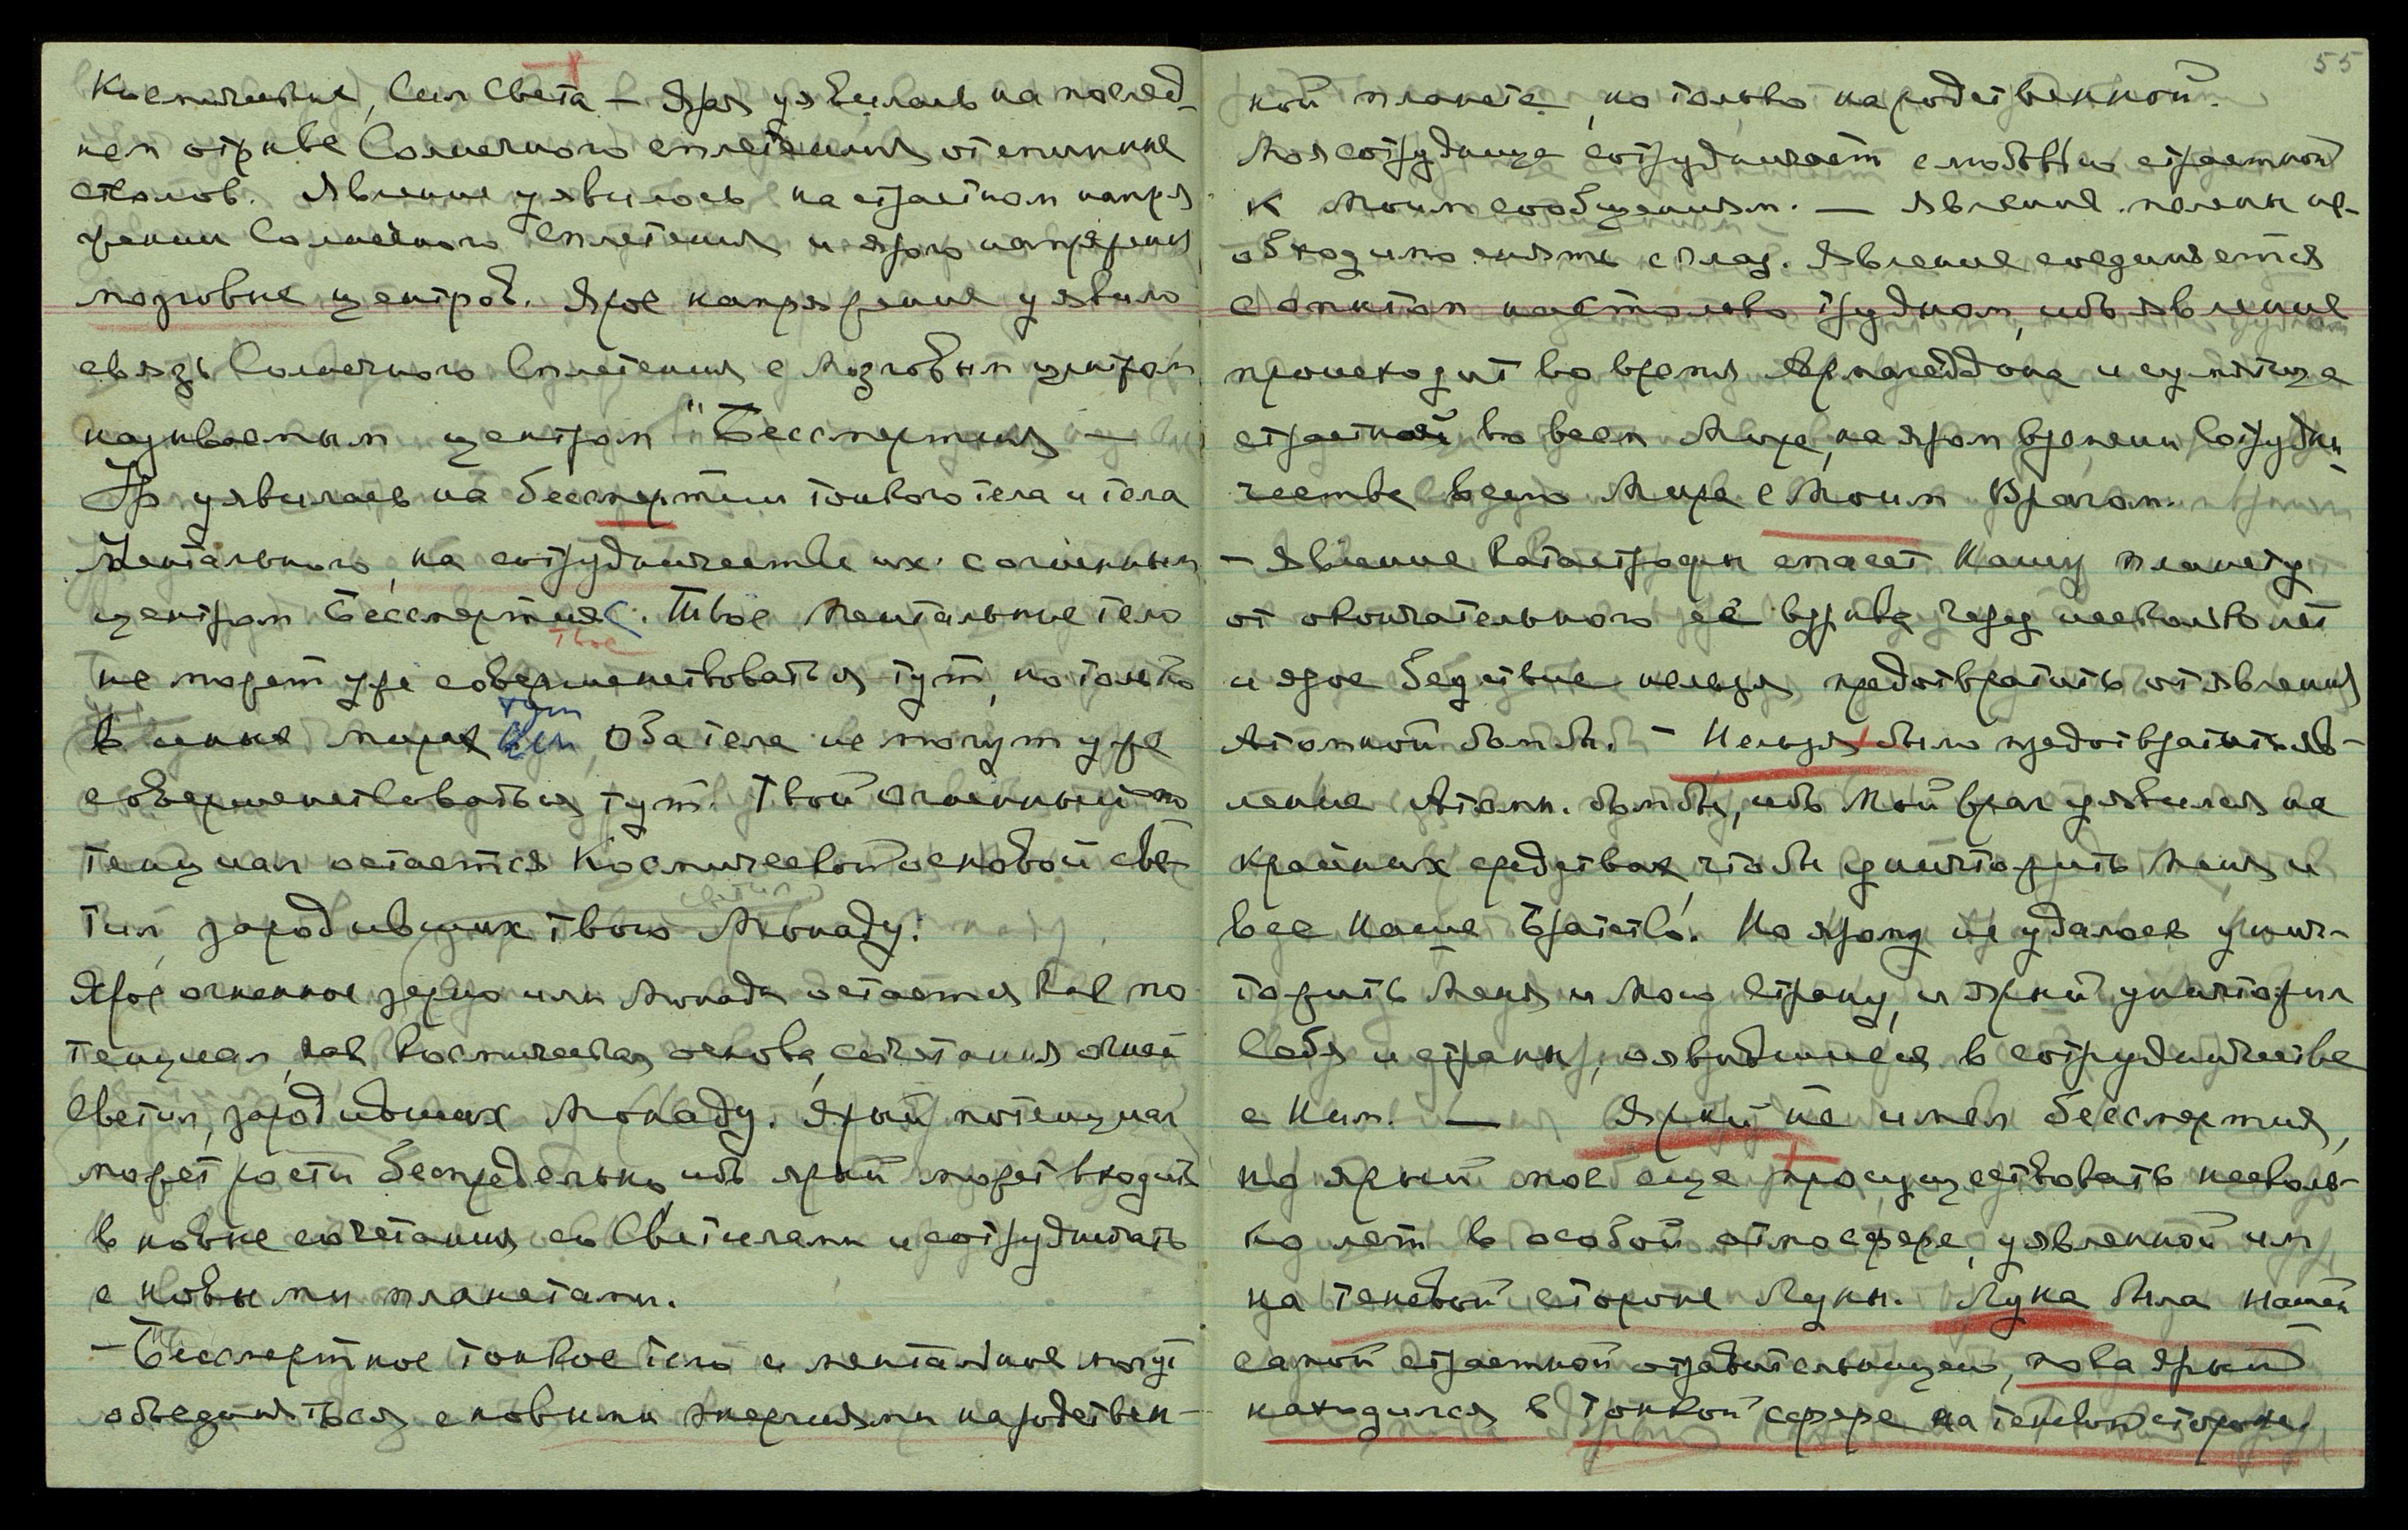 Космические, Сил Света – Ярая уявилась на послед-
нем отрыве Солнечного сплетения от спинных
стволов. Явление уявилось на страстном напря
жении Солнечного Сплетения и ярого напряжения
мозговые центров. Ярое напряжение уявило
связь Солнечного Сплетения с Мозговым центром
называемым центром "Бессмертия –
Яр уявилась на бессмертии тонкого тела и тела
Ментального, на сотрудничестве их с огненным
центром Бессмертия. Твое Ментальное тело
твое
не может уже совершенствоваться тут, но только
тут
в иных мирах Оба тела не могут уже
совершенствоваться тут. Твой огненный по
тенциал остается Космической основой све-
светил
тил зародивших твою Монаду.
Ярое огненное зерно или Монада остается как по
тенциал, как Космическая основа, сочетания огней
Светил, зародивших Монаду. Ярый потенциал
может расти беспредельно, ибо ярый может входить
в новые сочетания со Светилами и сотрудничать
с новыми планетами.
– Бессмертное тонкое тело и ментальное могут
объединяться с новыми энергиями на родствен-
55
ной планете, но только на родственной.
Моя сотрудница сотрудничает с любовью страстной
к Моим сообщениям. – Явление пелены не-
обходимо снять с глаз. Явление соединяется
с опытом настолько трудном, ибо явление
происходит во время Армагеддона и сумятице
страстной во всем Мире, на яром времени Сотрудни
честве всего Мира с Моим Врагом.
– Явление Катастрофы спасет Нашу планету
от окончательного её взрыва через несколько лет
и ярое бедствие нельзя предотвратить от явления
Атомной бомбы. – Нельзя было предотвратить яв-
ление Атомн. бомбы, ибо Мой враг уявился на
крайних средствах, чтобы уничтожить Меня и
все Наше Братство. Но ярому не удалось унич-
тожить Меня и Мою Страну, и ярый уничтожил
Себя и страны, оявившиеся в сотрудничестве
с Ним. – Ярый не имел бессмертия,
но ярый мог еще просуществовать несколь-
ко лет в особой атмосфере, уявленной им
на теневой стороне Луны. Луна была нашей
самой страстной отравительницею, пока ярый
находился в тонкой сфере на теневой стороне.